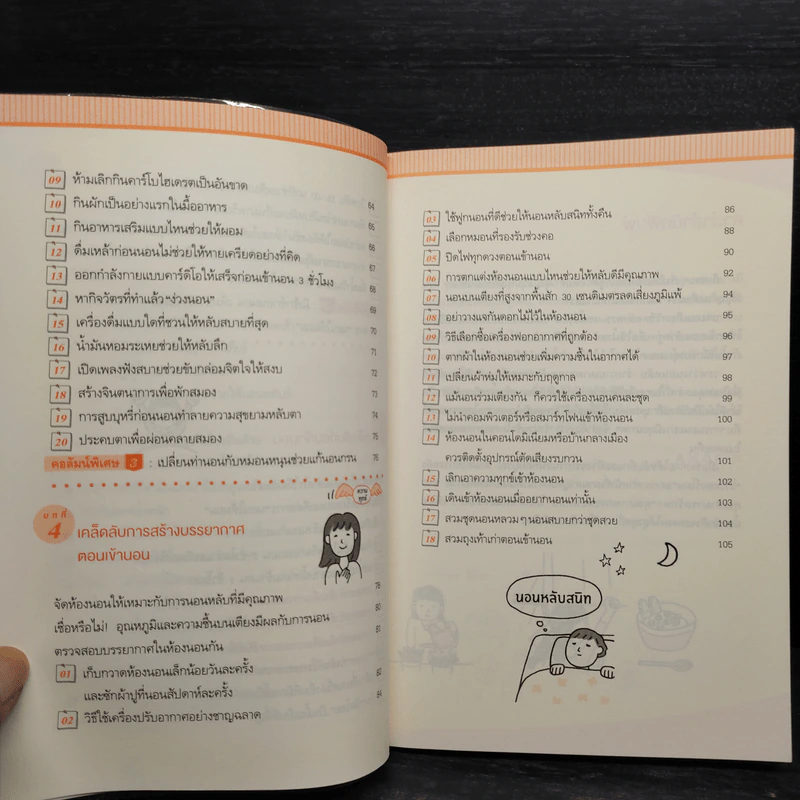 09 ห้ามเลิกกินคาร์โบไฮเดรตเป็นอันขาด 64
10 กินผักเป็นอย่างแรกในมื้ออาหาร 65
11 กินอาหารเสริมแบบไหนช่วยให้ผอม 66
12 ดื่มเหล้าก่อนนอนไม่ช่วยให้หายเครียดอย่างที่คิด 67
13 ออกกำลังกายแบบคาร์ดิโอให้เสร็จก่อนเข้านอน 3 ชั่วโมง 68
14 หากิจวัตรที่ทำแล้ว "ง่วงนอน" 69
15 เครื่องดื่มแบบใดที่ชวนให้หลับสบายที่สุด 70
16 น้ำมันหอมระเหยช่วยให้หลับลึก 71
17 เปิดเพลงฟังสบายช่วยขับกล่อมจิตใจให้สงบ 72
18 สร้างจินตนาการเพื่อพักสมอง 73
19 การสูบบุหรี่ก่อนนอนทำลายความสุขยามหลับตา 74
20 ประคบตาเพื่อผ่อนคลายสมอง 75
คอลัมน์พิเศษ 3 : เปลี่ยนท่านอนกับหมอนหนุนช่วยแก้นอนกรน 76
ความทุกข์
บทที่ 4 เคล็ดลับการสร้างบรรยากาศ
ตอนเข้านอน
จัดห้องนอนให้เหมาะกับการนอนหลับที่มีคุณภาพ 78
เชื่อหรือไม่! อุณหภูมิและความชื้นบนเตียงมีผลกับการนอน 80
ตรวจสอบบรรยากาศในห้องนอนกัน 81
01 เก็บกวาดห้องนอนเล็กน้อยวันละครั้ง
และซักผ้าปูที่นอนสัปดาห์ละครั้ง
02 วิธีใช้เครื่องปรับอากาศอย่างชาญฉลาด 84
03 ใช้ฟูกนอนที่ดีช่วยให้นอนหลับสนิททั้งคืน 86
04 เลือกหมอนที่รองรับช่วงคอ 88
05 ปิดไฟทุกดวงตอนเข้านอน 90
06 การตกแต่งห้องนอนแบบไหนช่วยให้หลับดีมีคุณภาพ 92
07 นอนบนเตียงที่สูงจากพื้นสัก 30 เซนติเมตรลดเสี่ยงภูมิแพ้ 94
08 อย่าวางแจกันดอกไม้ไว้ในห้องนอน 95
09 วิธีเลือกซื้อเครื่องฟอกอากาศที่ถูกต้อง 96
10 ตากผ้าในห้องนอนช่วยเพิ่มความชื้นในอากาศได้ 97
11 เปลี่ยนผ้าห่มให้เหมาะกับฤดูกาล 98
12 แม้นอนร่วมเตียงกัน ก็ควรใช้เครื่องนอนคนละชุด 99
13 ไม่นำคอมพิวเตอร์หรือสมาร์ทโฟนเข้าห้องนอน 100
14 ห้องนอนในคอนโดมิเนียมหรือบ้านกลางเมือง
ควรติดตั้งอุปกรณ์ตัดเสียงรบกวน 101
15 เลิกเอาความทุกข์เข้าห้องนอน 102
16 เดินเข้าห้องนอนเมื่ออยากนอนเท่านั้น 103
17 สวมชุดนอนหลวมๆ นอนสบายกว่าชุดสวย 104
18 สวมถุงเท้าเก่าตอนเข้านอน 105
นอนหลับสนิท